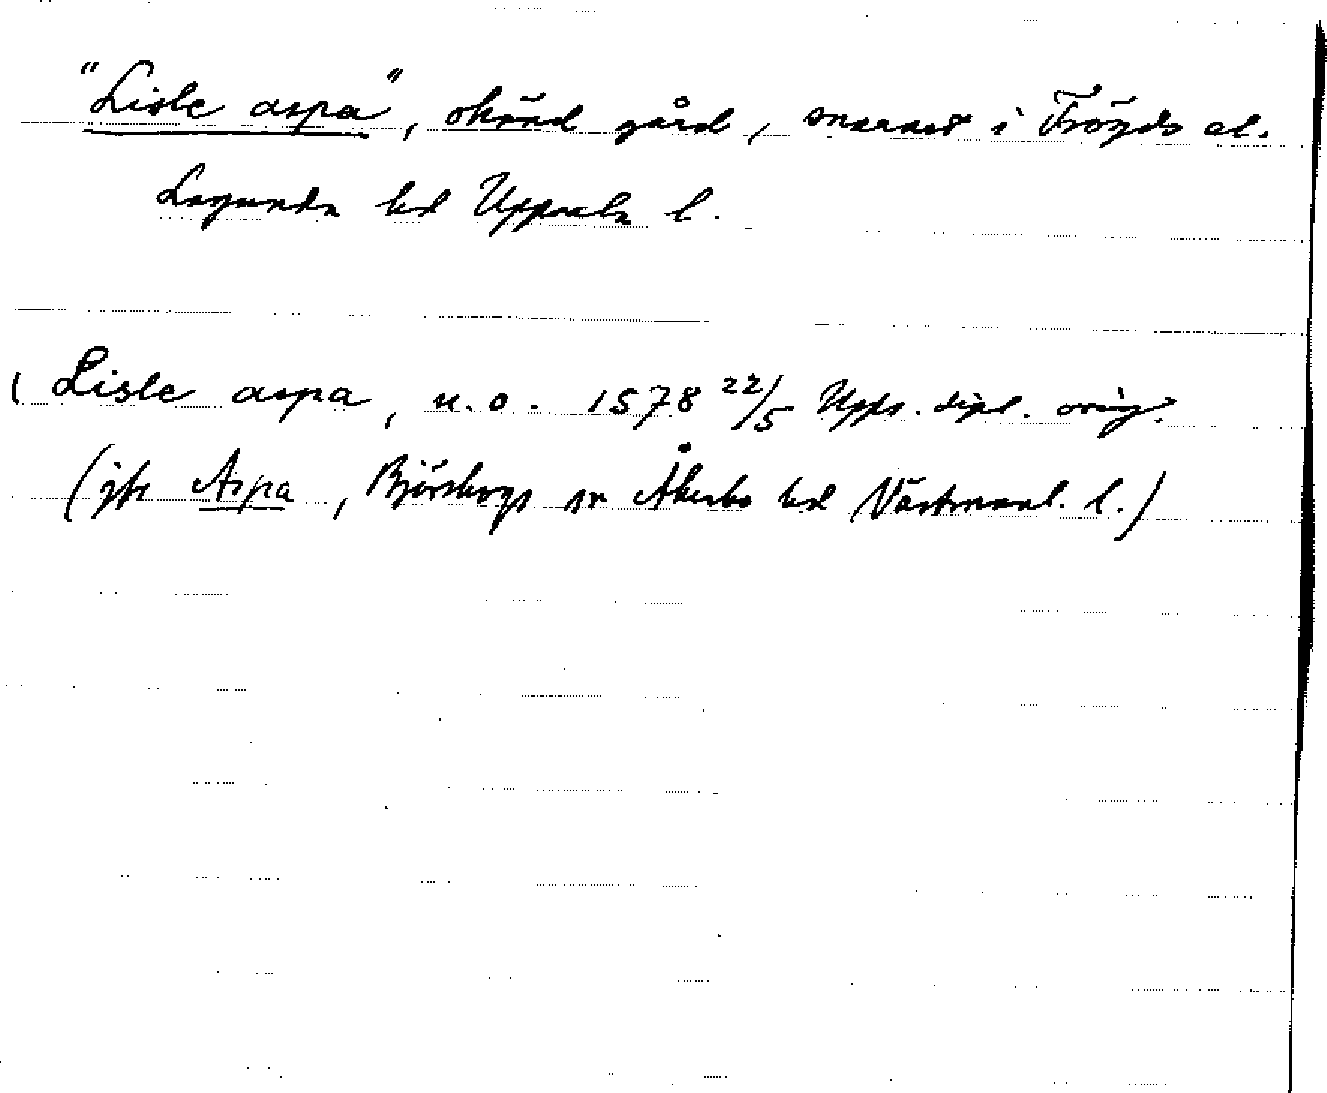 "Lisle aspa", okänd gård, snarast i Trögds el.
Lagunda hd Uppsala l.
( Lisle aspa, u.o. 1578 22/5 Upps. dipl. orig.
(jfr Aspa, Björskogs sn Åkerbo hd Västmanl. l.)